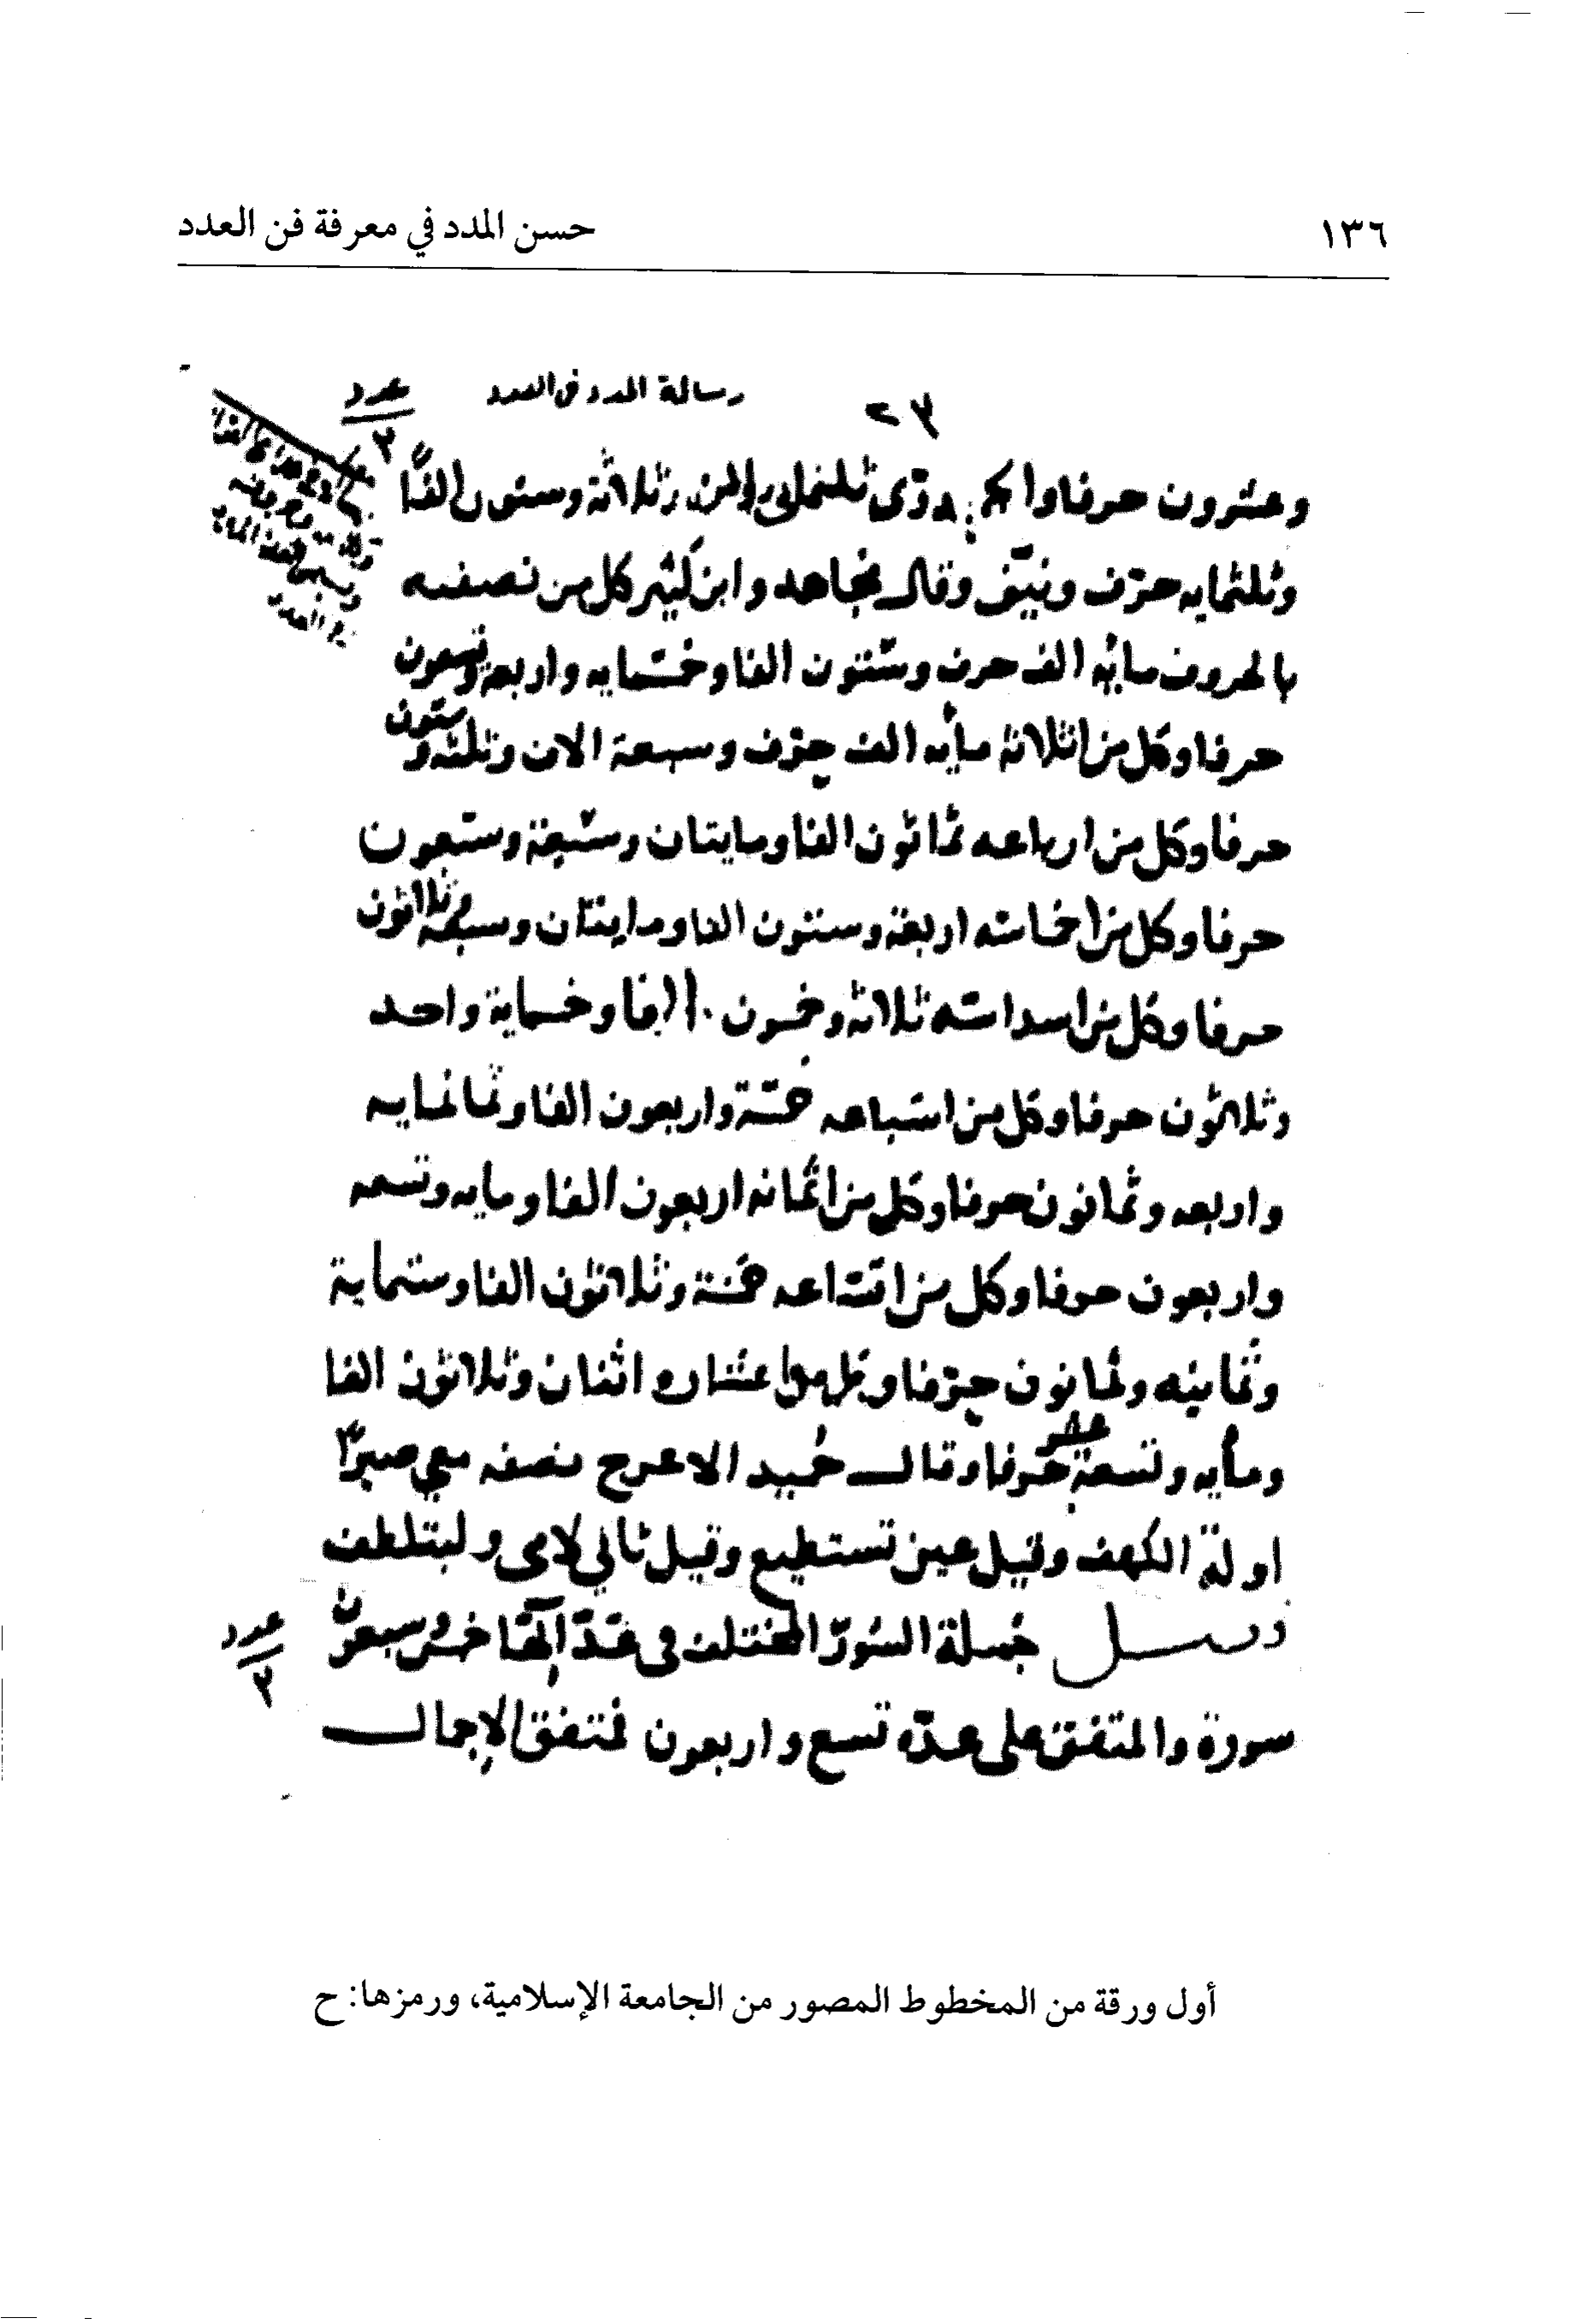 ١٣٦
حسن المدد في معرفة فن العدد
رسالة المدد في العدد
٢٣
عدد
٢
وعشرون حرفا ثلاثة وستون الفا
وثلثمايه حرف ونيف وقال مجاهد وابن كثير كل من نصفيه
بالحروف مايه الف حرف وستون الفا وخمسمايه واربعة وتسعون
حرفا وكل من اثلاثه مأيه الف حرف وسبعة الاف وثلثه وستون
حرفا وكل من ارباعه ثمانون الفا ومايتان وسبعة وتسعون
حرفا وكل من اخماسه اربعة وستون الفا ومايتان وسبعة وثلاثون
حرفا وكل من اسداسه ثلاثه وخمسون الفا وخمسماية واحد
وثلاثون حرفا وكل من اسباعه خمسة واربعون الفا وثمانمايه
واربعه وثمانون حرفا وكل من اثمانه اربعون الفا ومايه وتسعه
واربعون حرفا وكل من اتساعه خمسة وثلاثون الفا وستماية
وثمانيه وثمانون حرفا وكل من اعشاره اثنان وثلاثون الفا
ومأيه وتسعة عشر حرفا وقال حُميد الاعرج نصفه معي صبرا
اولة الكهف وقيل عين تستطيع وقيل ثاني لامى وليتلطف
فصل جُملة السُور المختلف فى عدّ آيها خمس وسبعون
سورة والمتفق على عدّه تسع واربعون فمتفق الاجمال
عدد
٢
أول ورقة من المخطوط المصور من الجامعة الإسلامية، ورمزها: ح